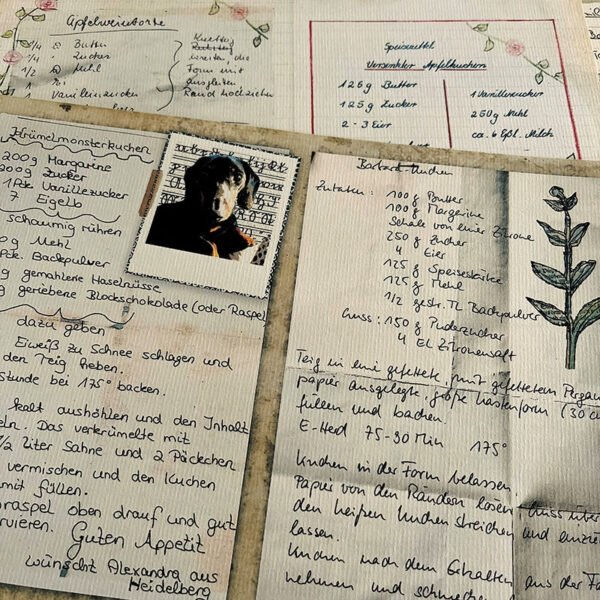 Apfelweintorte
1/4 Butter
1/4 Zucker
1/2 Mehl
1
Vanillezucker
Knetteig
bereiten, die
Form mit
ausgleiten
Rand hochziehen
Speisezettel
Versenkter Apfelkuchen
125 g Butter
125 g Zucker
2 - 3 Eier
1 Vanillezucker
250 g Mehl
ca. 6 Eßl. Milch
Krümelmonsterkuchen
200 g Margarine
200 g Zucker
1 Pck. Vanillezucker
7 Eigelb
schaumig rühren
g Mehl
Pck. Backpulver
g gemahlene Haselnüsse
g geriebene Blockschokolade (oder Raspel
dazu geben
Eiweiß zu Schnee schlagen und
den Teig heben.
Stunde bei 175° backen.
kalt aushöhlen und den Inhalt
eln. Das verkrümelte mit
1/2 Liter Sahne und 2 Päckchen
vermischen und den Kuchen
mit füllen.
raspel oben drauf und gut
rvieren. Guten Appetit
wünscht Alexandra aus
Heidelberg
Kuchen
Zutaten: 100 g Butter
100 g Margarine
Schale von einer Zitrone
250 g Zucker
4 Eier
125 g Speisestärke
125 g Mehl
1/2 gestr. TL Backpulver
Guss: 150 g Puderzucker
4 EL Zitronensaft
Teig in eine gefettete, mit gefettetem Pergam
papier ausgelegte, große Kastenform (30 cm
füllen und backen.
E-Herd 75-90 Min 175°
Kuchen in der Form belassen
Papier von den Rändern lösen, Guss über
den heißen Kuchen streichen und einzie
lassen.
Kuchen nach dem Erkalten aus der Fo
nehmen und